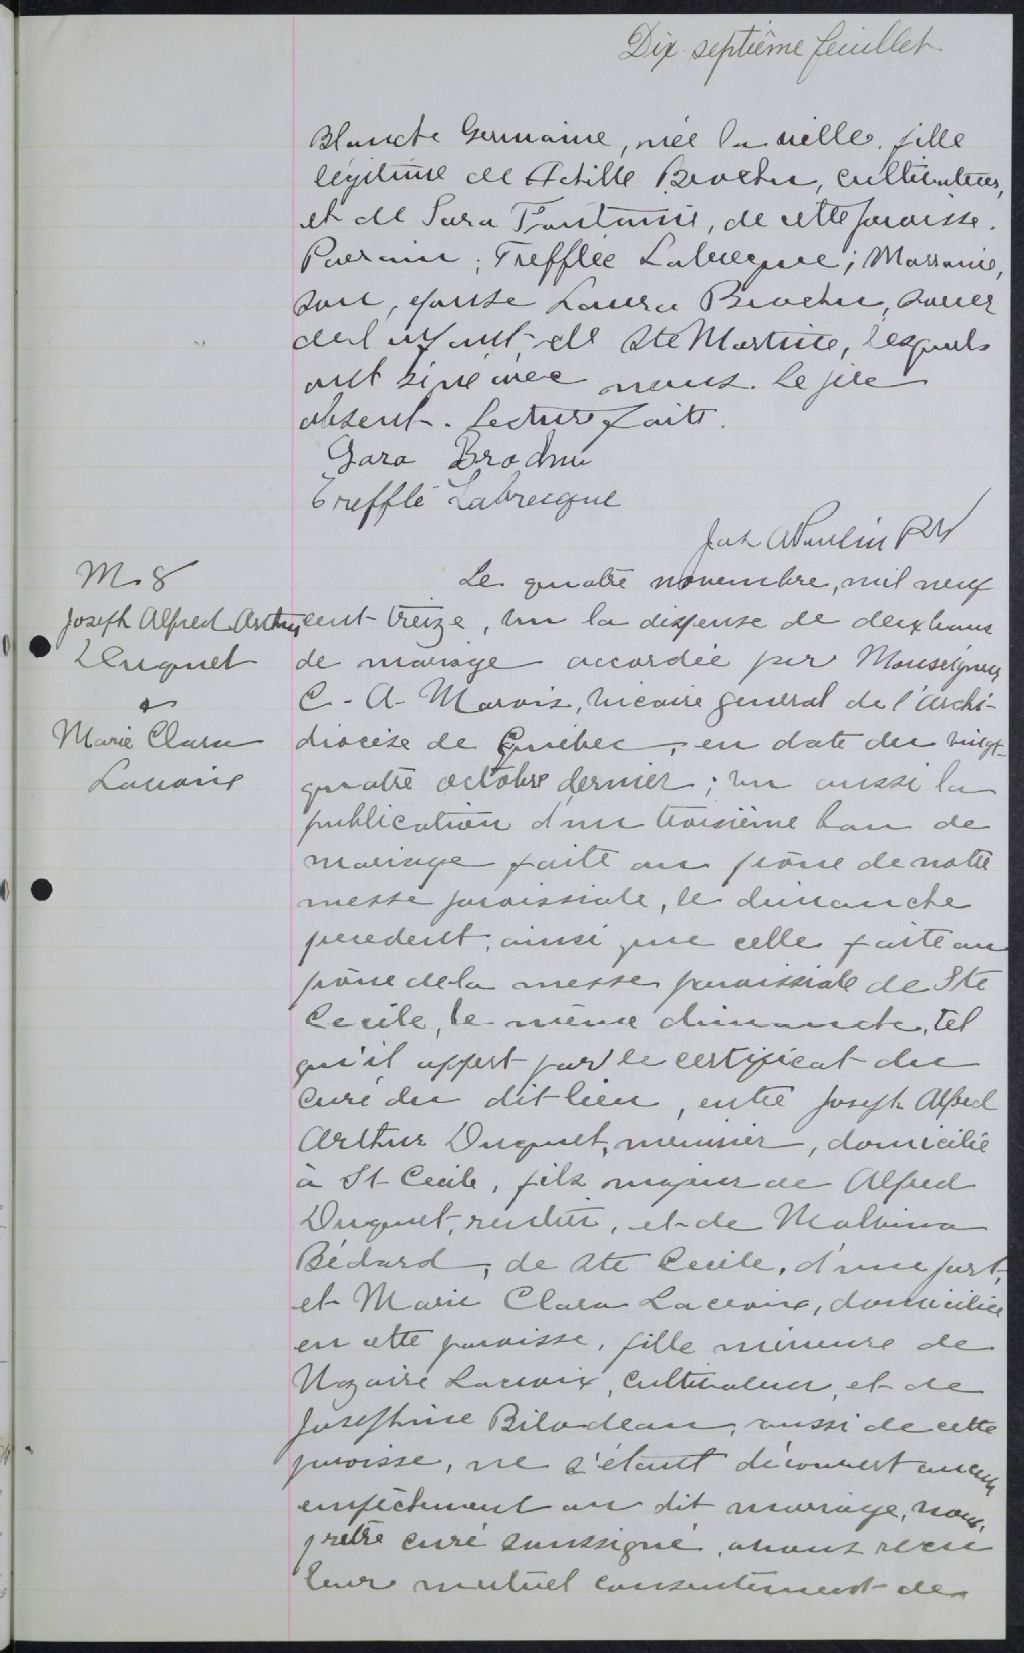 Dix-septième feuillet
Blanche Germaine, née la veille, fille
légitime de Achille Brochu, cultivateur,
et de Sara Fontaine, de cette paroisse.
Parrain; Trefflée Labrecque; Marraine,
son épouse Laura Brochu, soeur
de l'enfant de Ste Martine, lesquels
ont signé avec nous. Le père
absent. Lecture faite.
Lara Brochu
Trefflé Labrecque
Jos A Poulin Ptr
M. 8
Joseph Alfred Arthur
Duquet
&
Marie Clara
Lacroix
Le quatre novembre, mil neuf
cent treize, vu la dispense de deux bans
de mariage accordée par Monseigneur
C. A. Marois, vicaire general de l'Archi-
diocèse de Québec, en date du vingt-
quatre octobre dernier; vu aussi la
publication d'un troisième ban de
mariage faite au prône de notre
messe paroissiale, le dimanche
precedent, ainsi que celle faite au
prône de la messe paroissiale de Ste
Cecile, le même dimanche, tel
qu'il appert par le certificat du
Curé du dit lieu, entre Joseph Alfred
Arthur Duquet, meunier, domicilié
à St Cecile, fils majeur de Alfred
Duquet, rentier, et de Malvina
Bédard, de Ste Cecile, d'une part,
et Marie Clara Lacroix, domiciliée
en cette paroisse, fille mineure de
Nazaire Lacroix, cultivateur, et de
Josephine Bilodeau, aussi de cette
paroisse, ne s'étant découvert aucun
empêchement au dit mariage, nous,
prêtre curé soussigné, avons reçu
leur mutuel consentement de